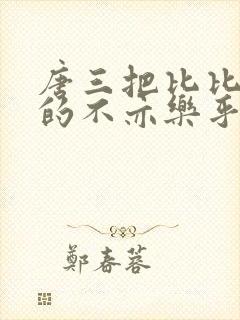 唐三把比比
的不亦樂乎
鄭春蓉